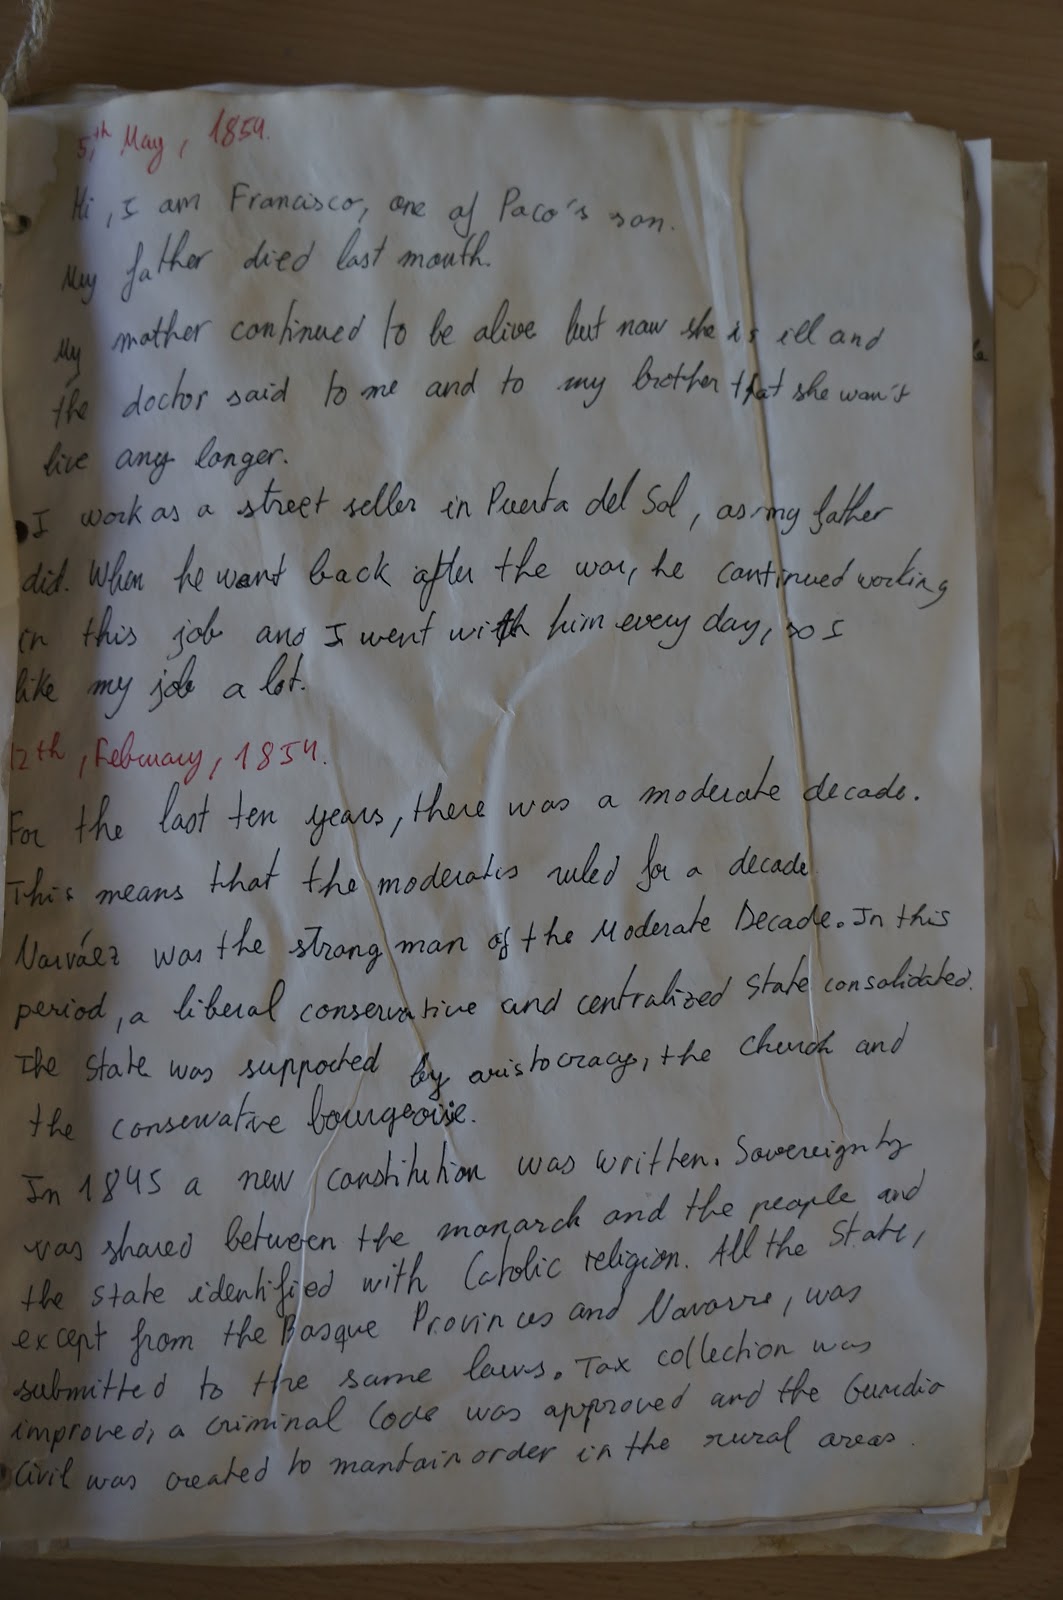 5,th May, 1854.
Hi, I am Francisco, one of Paco's son.
My father died last month.
My mother continued to be alive but now she is ill and
the doctor said to me and to my brother that she wan't
live any longer.
I work as a street seller in Puerta del Sol, as my father
did. When he want back after the war, he continued working
in this job and I went with him every day, so I
like my job a lot.
12th, February, 1854.
For the last ten years, there was a moderate decade.
This means that the moderates ruled for a decade.
Narváez was the strong man of the Moderate Decade. In this
period, a liberal conservative and centralized State consolidated.
The State was supported by aristocracy, the church and
the conservative bourgeoisie.
In 1845 a new constitution was written. Sovereignty
was shared between the monarch and the people and
the State identified with Catolic religion. All the State,
except from the Basque Provinces and Navarre, was
submitted to the same laws. Tax collection was
improved, a criminal Code was approved and the Guardia
Civil was created to mantain order in the rural areas.